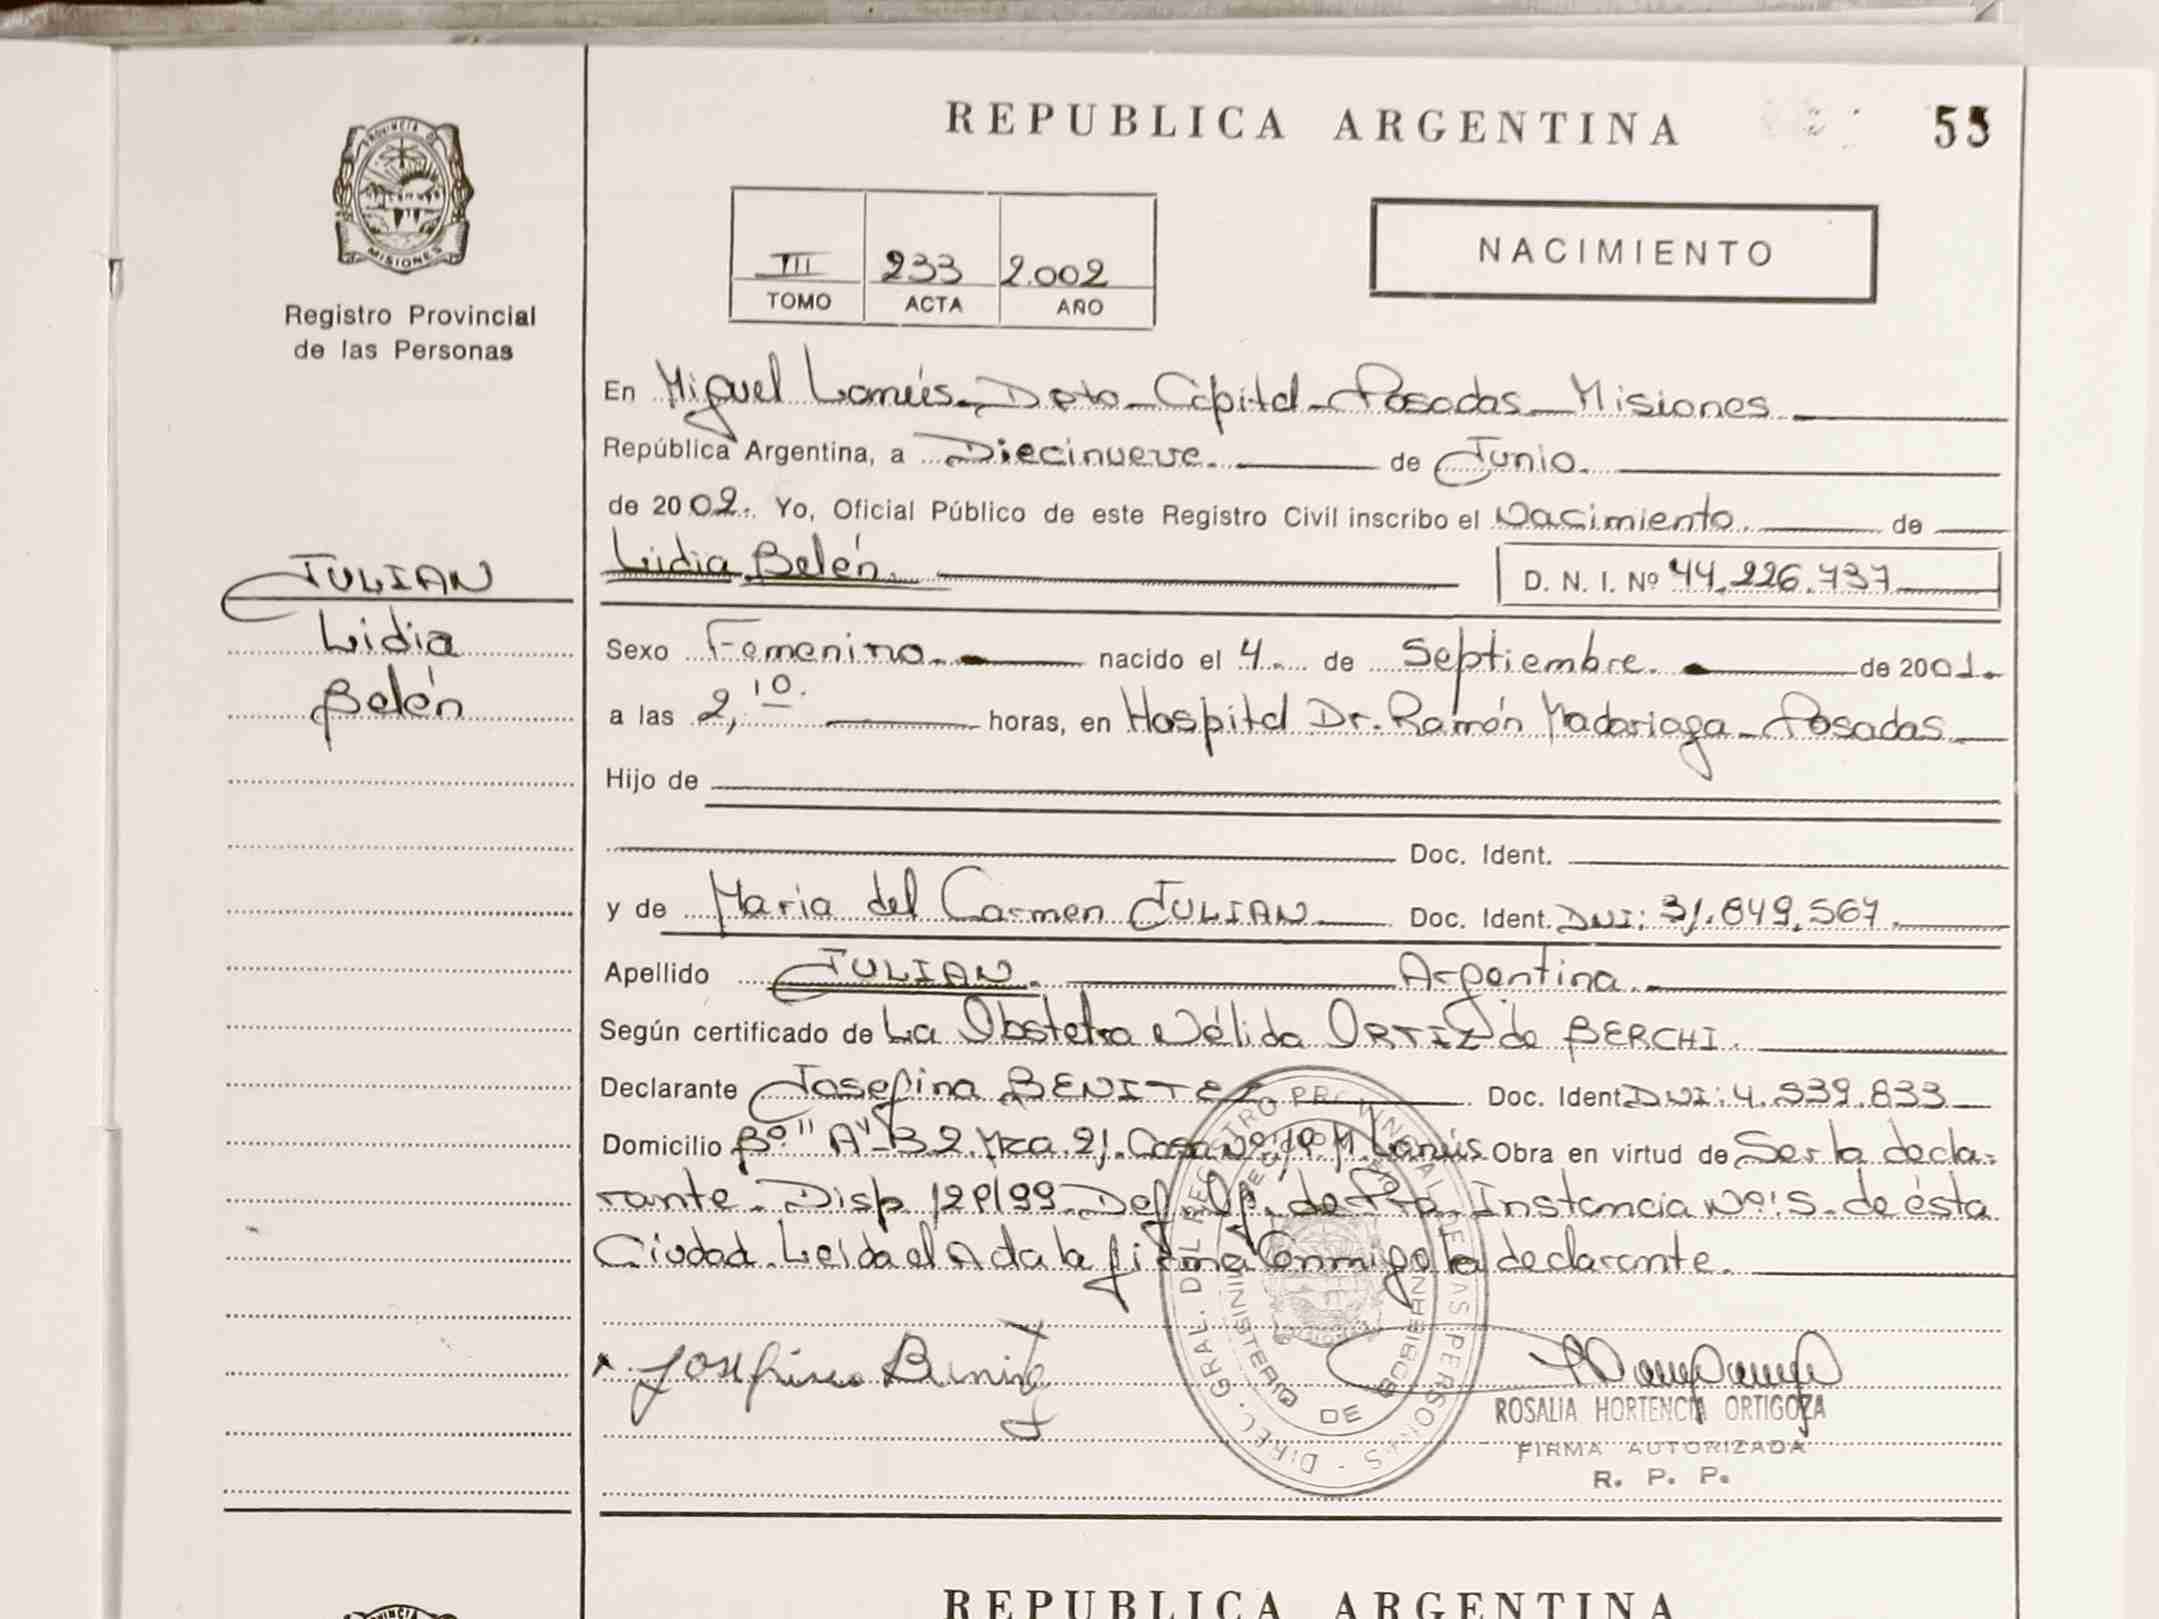 REPUBLICA ARGENTINA
55
PROVINCIA DE MISIONES
Registro Provincial
de las Personas
III 233 2.002
TOMO ACTA AÑO
NACIMIENTO
En Miguel Lanús - Dpto - Capital - Posadas - Misiones
República Argentina, a Diecinueve. de Junio.
de 2002. Yo, Oficial Público de este Registro Civil inscribo el Nacimiento. de
Lidia Belén. D. N. I. Nº 44.226.737
JULIAN
Lidia
Belén
Sexo Femenino. nacido el 4. de Septiembre. de 2001.
a las 2,10. horas, en Hospital Dr. Ramón Madariaga - Posadas
Hijo de
Doc. Ident.
y de Maria del Carmen JULIAN Doc. Ident. DNI: 31.849.567.
Apellido JULIAN. Argentina.
Según certificado de La Obstetra Nélida ORTIZ de BERCHI.
Declarante Josefina BENITEZ Doc. Ident. DNI: 4.539.833
Domicilio Bº "A" 32. Mza. 21. Casa Nº M. Lanús Obra en virtud de Ser la decla-
rante. Disp. 99. Def. Of. de Instancia Nº 5. de ésta
Ciudad. Leída el Acta la firma Conmigo la declarante.
Josefina Benitez
DIREC. GRAL. DEL REGISTRO PROVINCIAL DE LAS PERSONAS
MINISTERIO DE GOBIERNO
ROSALIA HORTENCIA ORTIGOZA
FIRMA AUTORIZADA
R. P. P.
REPUBLICA ARGENTINA
PROVINCIA